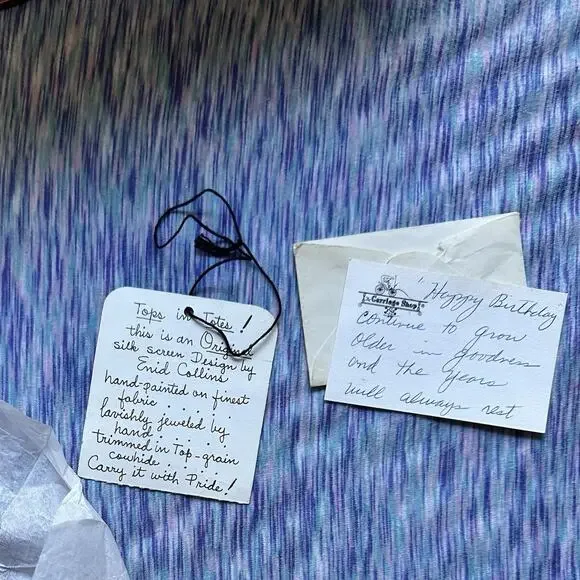 Tops in Totes!
this is an Original
silk screen Design by
Enid Collins
hand-painted on finest
fabric . . . . . .
lavishly jeweled by
hand . . . . . .
trimmed in Top-grain
cowhide . . . . .
Carry it with Pride!
The Carriage Shop
"Happy Birthday
continue to grow
older in goodness
and the years
will always rest